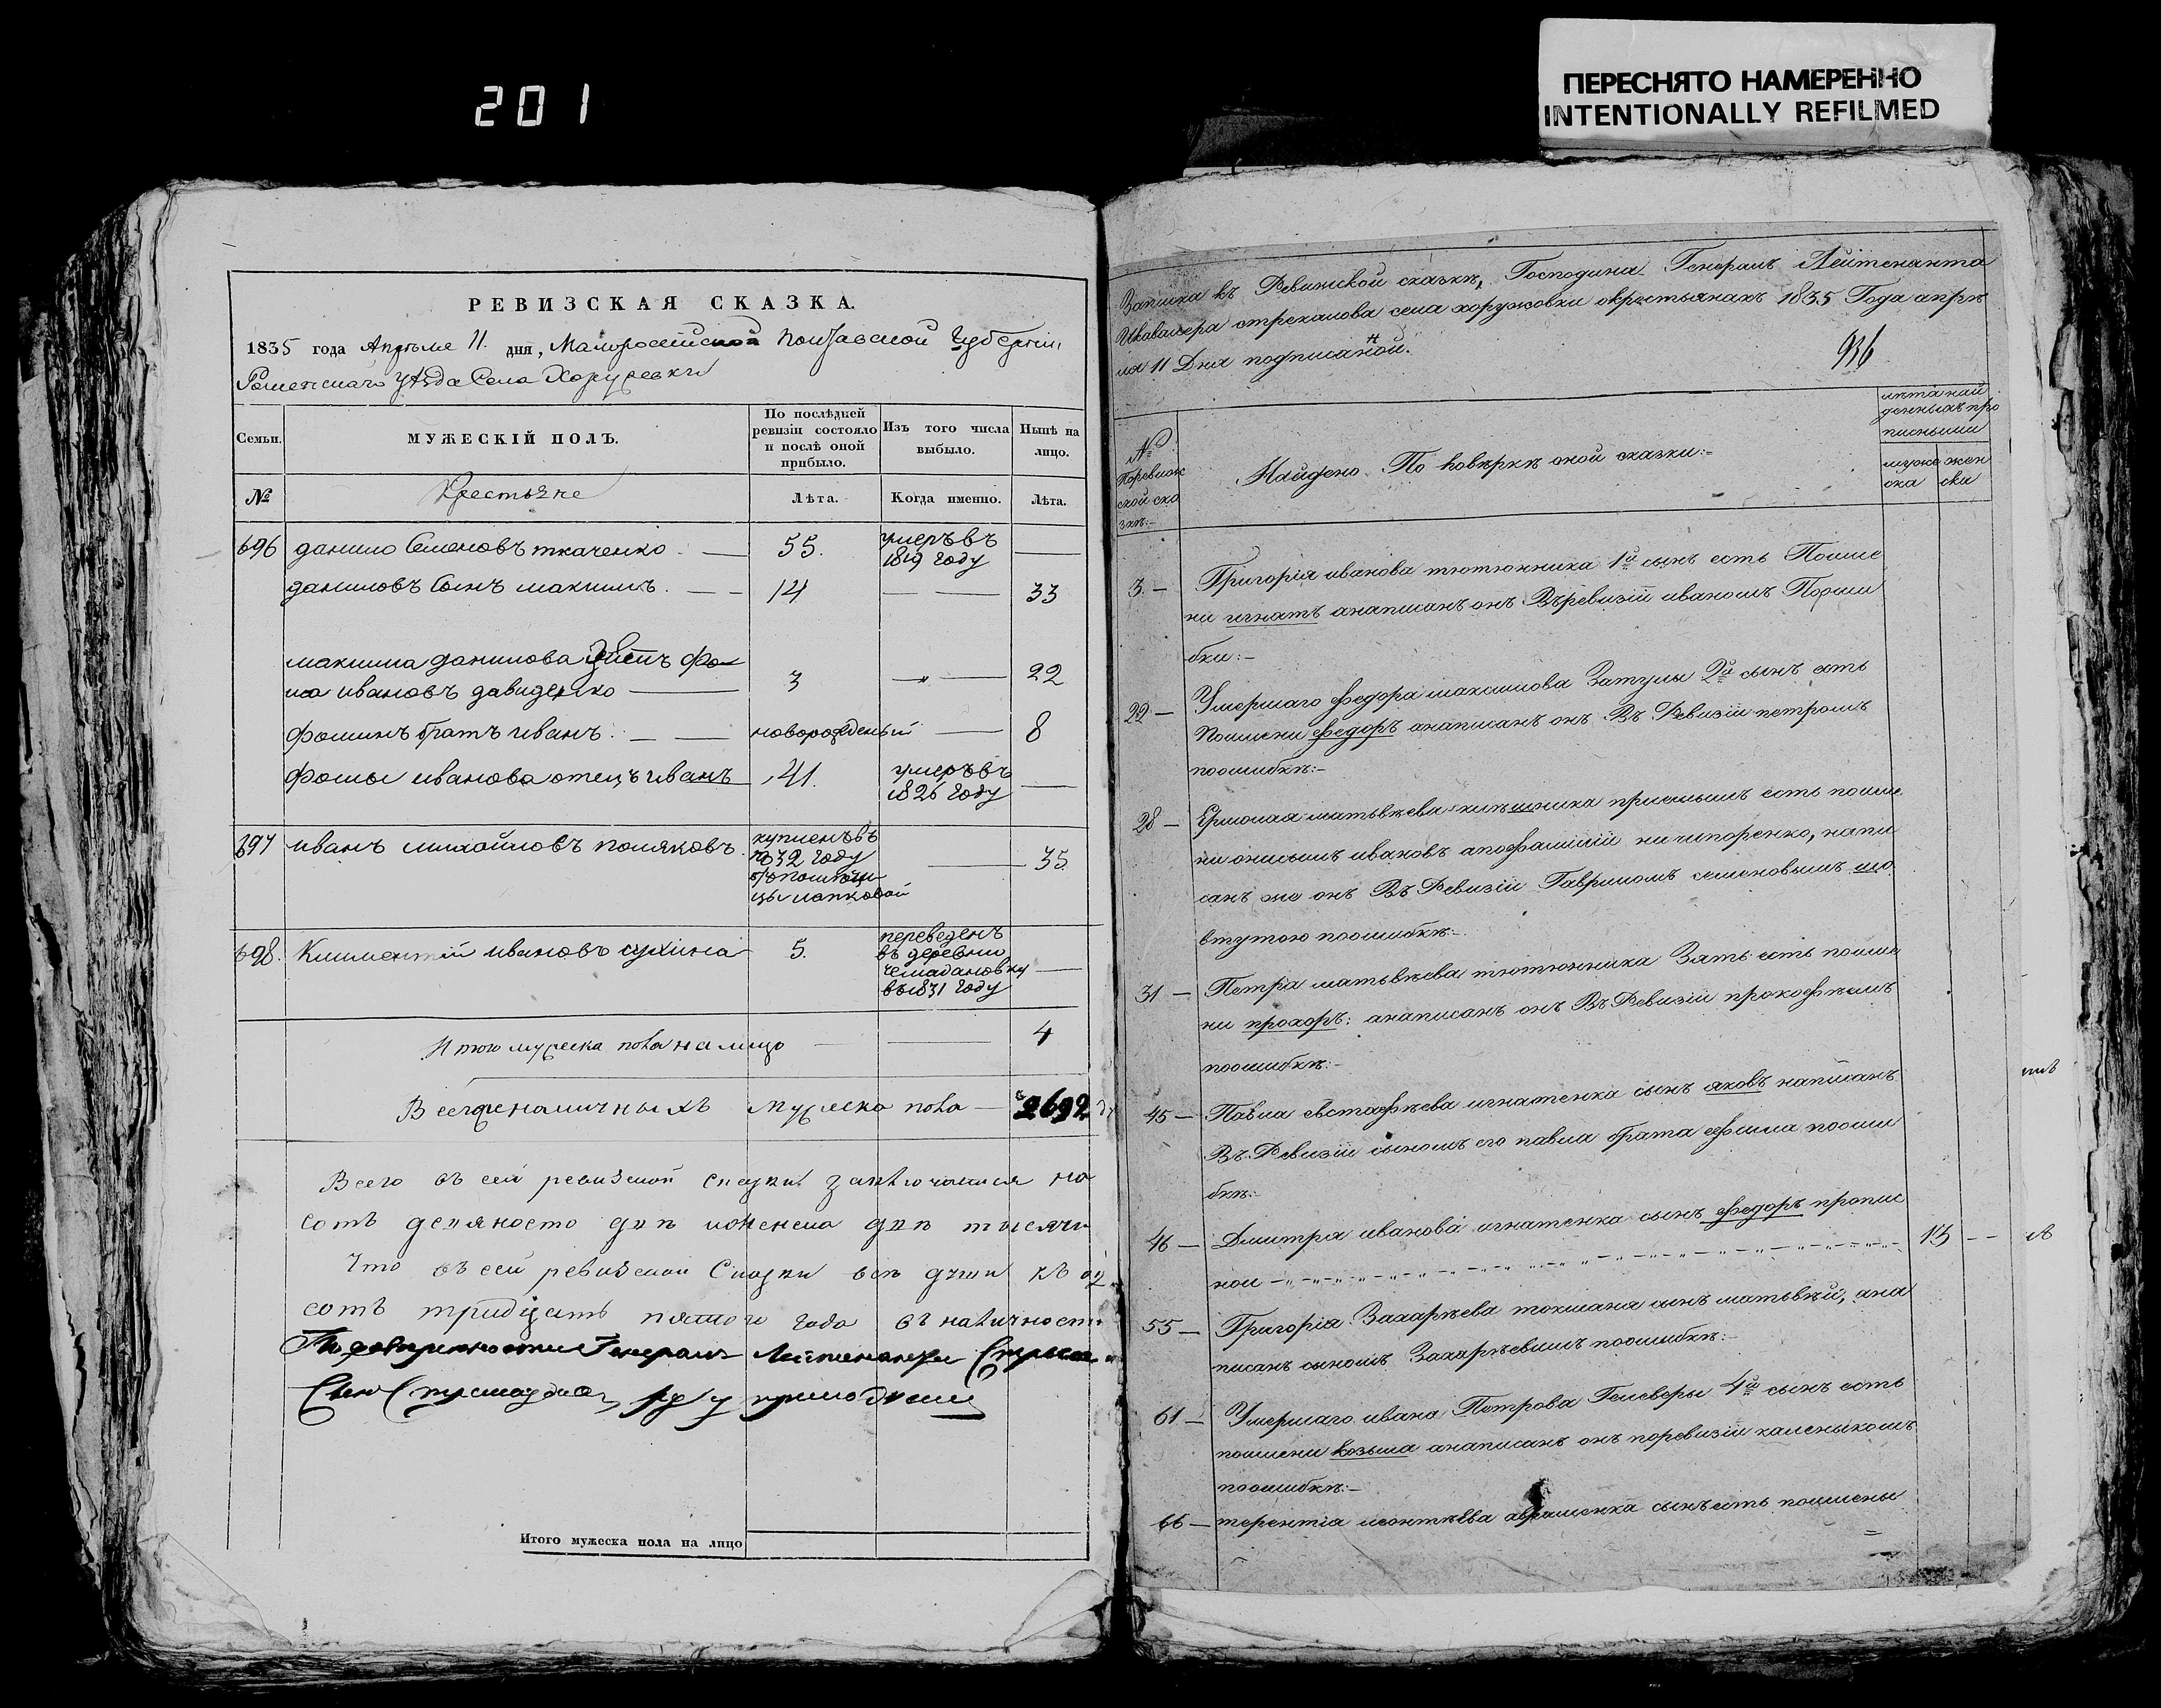 201
ПЕРЕСНЯТО НАМЕРЕННО
INTENTIONALLY REFILMED
РЕВИЗСКАЯ СКАЗКА.
1835 года Апреля 11. дня, Малоросейской Полтавской Губерніи,
Роменскаго уезда Села Хоружевки
Семьи.
МУЖЕСКІЙ ПОЛЪ.
По послѣдней ревизіи состояло и послѣ оной прибыло.
Изъ того числа выбыло.
Нынѣ на лицо.
№
Крестьяне
Лѣта.
Когда именно.
Лѣта.
696 данило Семеновъ ткаченко 55. умеръ въ 1819 году
даниловъ сынъ максимъ. 14 33
максима данилова зять фо-
ма ивановъ давиденко 3 22
фоминъ братъ иванъ. новорожденый 8
фомы иванова отецъ иванъ 41. умеръ въ 1826 году
697 иванъ михайловъ поляковъ купленъ въ 1832 году 35.
698. Климентій ивановъ сухина 5. переведенъ въ деревню чемодановку въ 1831 году
Итого мужеска пола на лицо 4
Всего наличныхъ мужеска пола 2692
Всего въ сей ревизской сказки заключается
сотъ девяносто две женска две тысячи
Что въ сей ревизской Сказки все души къ
сотъ тридцать пятого года въ наличност
По доверенности Генералъ Лейтенанта
Итого мужеска пола на лицо
Записка къ Ревизской сказкѣ, Господина Генералъ Лейтенанта
Икавалера стрекалова села хоружовки окрестьянахъ 1835 Года апре
ля 11 Дня подписаной.
936
№ Поревизской сказкѣ:
Найдено По повѣркѣ оной сказки:
лѣта най
денныхъ про
писными
муже
ска
жен
ска
3. — Григорія иванова тютюнника 1й сынъ есть Поиме
ни игнатъ анаписанъ онъ Въревизіи иваномъ Пооши
бки:
22 — Умершаго федора максимова Затулы 2й сынъ есть
Поимени федоръ анаписанъ онъ Въ Ревизіи петромъ
поошибкѣ:
28 — Ермолая матьвѣева приемышъ есть поиме
ни онисимъ ивановъ апофамиліи ничипоренко, напи
санъ же онъ Въ Ревизіи Гавриломъ семеновымъ
поошибкѣ:
31 — Петра матьвѣева тютюнника Зять есть поиме
ни прохоръ: анаписанъ онъ Въ Ревизіи прокофіемъ
поошибкѣ:
45 — Павла евстафѣева игнатенка сынъ яковъ написанъ
Въ Ревизіи сыномъ его павла брата ефима пооши
бкѣ:
46 — Дмитра иванова игнатенка сынъ федоръ пропис
ной 13
55 — Григорія Захарѣева токмана сынъ матьвѣй, ана
писанъ сыномъ Захарѣевымъ поошибкѣ:
61 — Умершаго ивана Петрова Гелеверы 4й сынъ есть
поимени козьма анаписанъ онъ поревизіи каленыкомъ
поошибкѣ:
66 — терентіа леонтѣева авраменка сынъ есть поимены